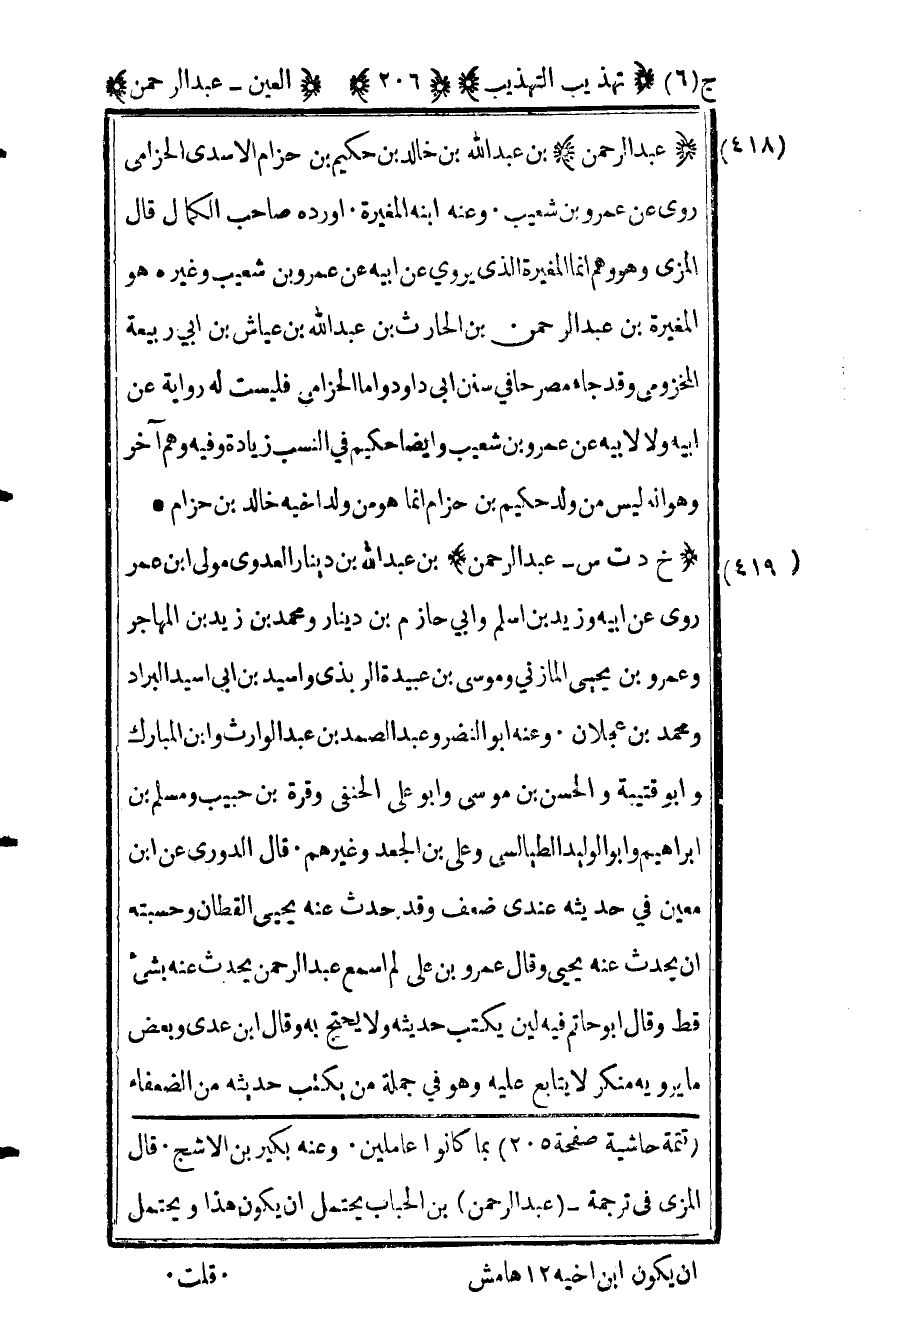 ج(٦) ﴿ تهذيب التهذيب ﴾ ﴿ ٢٠٦ ﴾ ﴿ العين ـ عبدالرحمن ﴾
(٤١٨) ﴿ عبدالرحمن ﴾ بن عبدالله بن خالد بن حكيم بن حزام الاسدى الحزامى
روى عن عمرو بن شعيب ٠ وعنه ابنه المغيرة ٠ اورده صاحب الكمال قال
المزى وهو وهم انما المغيرة الذى يروي عن ابيه عن عمرو بن شعيب وغيره هو
المغيرة بن عبدالرحمن ٠ بن الحارث بن عبدالله بن عياش بن ابي ربيعة
المخزومى وقد جاء مصرحا في سنن ابى داود واما الحزامي فليست له رواية عن
ابيه ولا لابيه عن عمرو بن شعيب وايضا حكيم في النسب زيادة وفيه وهم آخر
وهو انه ليس من ولد حكيم بن حزام انما هو من ولد اخيه خالد بن حزام ٠
(٤١٩) ﴿ خ د ت س ـ عبدالرحمن ﴾ بن عبدالله بن دينار العدوى مولى ابن عمر
روى عن ابيه وزيد بن اسلم وابي حازم بن دينار ومحمد بن زيد بن المهاجر
وعمرو بن يحيى المازني وموسى بن عبيدة الربذى واسيد بن ابى اسيد البراد
ومحمد بن عجلان ٠ وعنه ابو النضر وعبد الصمد بن عبد الوارث وابن المبارك
وابو قتيبة والحسن بن موسى وابو على الحنفى وقرة بن حبيب ومسلم بن
ابراهيم وابو الوليد الطيالسي وعلى بن الجعد وغيرهم ٠ قال الدورى عن ابن
معين في حديثه عندى ضعف وقد حدث عنه يحيى القطان وحسبته
ان يحدث عنه يحيى وقال عمرو بن على لم اسمع عبدالرحمن يحدث عنه بشئ
قط وقال ابو حاتم فيه لين يكتب حديثه ولا يحتج به وقال ابن عدى وبعض
ما يرويه منكر لا يتابع عليه وهو في جملة من يكتب حديثه من الضعفاء
(تتمة حاشية صفحة ٢٠٥) بما كانوا عاملين ٠ وعنه بكير بن الاشج ٠ قال
المزى فى ترجمة ـ (عبدالرحمن) بن الحباب يحتمل ان يكون هذا ويحتمل
ان يكون ابن اخيه ١٢ هامش ٠ قلت ٠